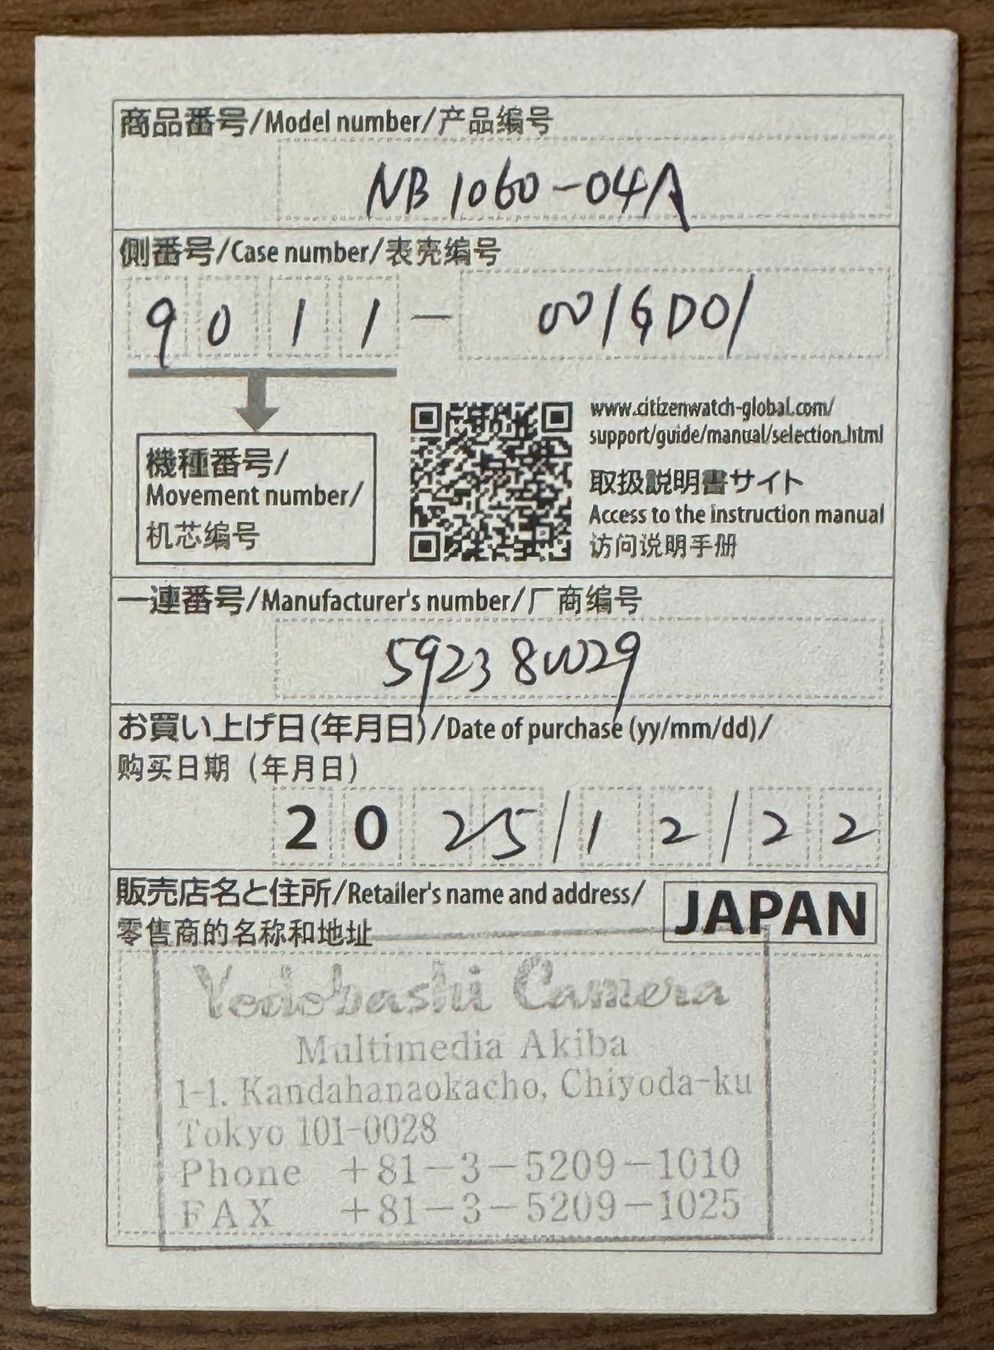 商品番号/Model number/产品编号
NB1060-04A
側番号/Case number/表壳编号
9011-001GD01
機種番号/
Movement number/
机芯编号
www.citizenwatch-global.com/
support/guide/manual/selection.html
取扱説明書サイト
Access to the instruction manual
访问说明手册
一連番号/Manufacturer's number/厂商编号
59238W29
お買い上げ日(年月日)/Date of purchase (yy/mm/dd)/
购买日期（年月日）
2025/12/22
販売店名と住所/Retailer's name and address/
零售商的名称和地址
JAPAN
Yodobashi Camera
Multimedia Akiba
1-1. Kandahanaokacho, Chiyoda-ku
Tokyo 101-0028
Phone +81-3-5209-1010
FAX +81-3-5209-1025